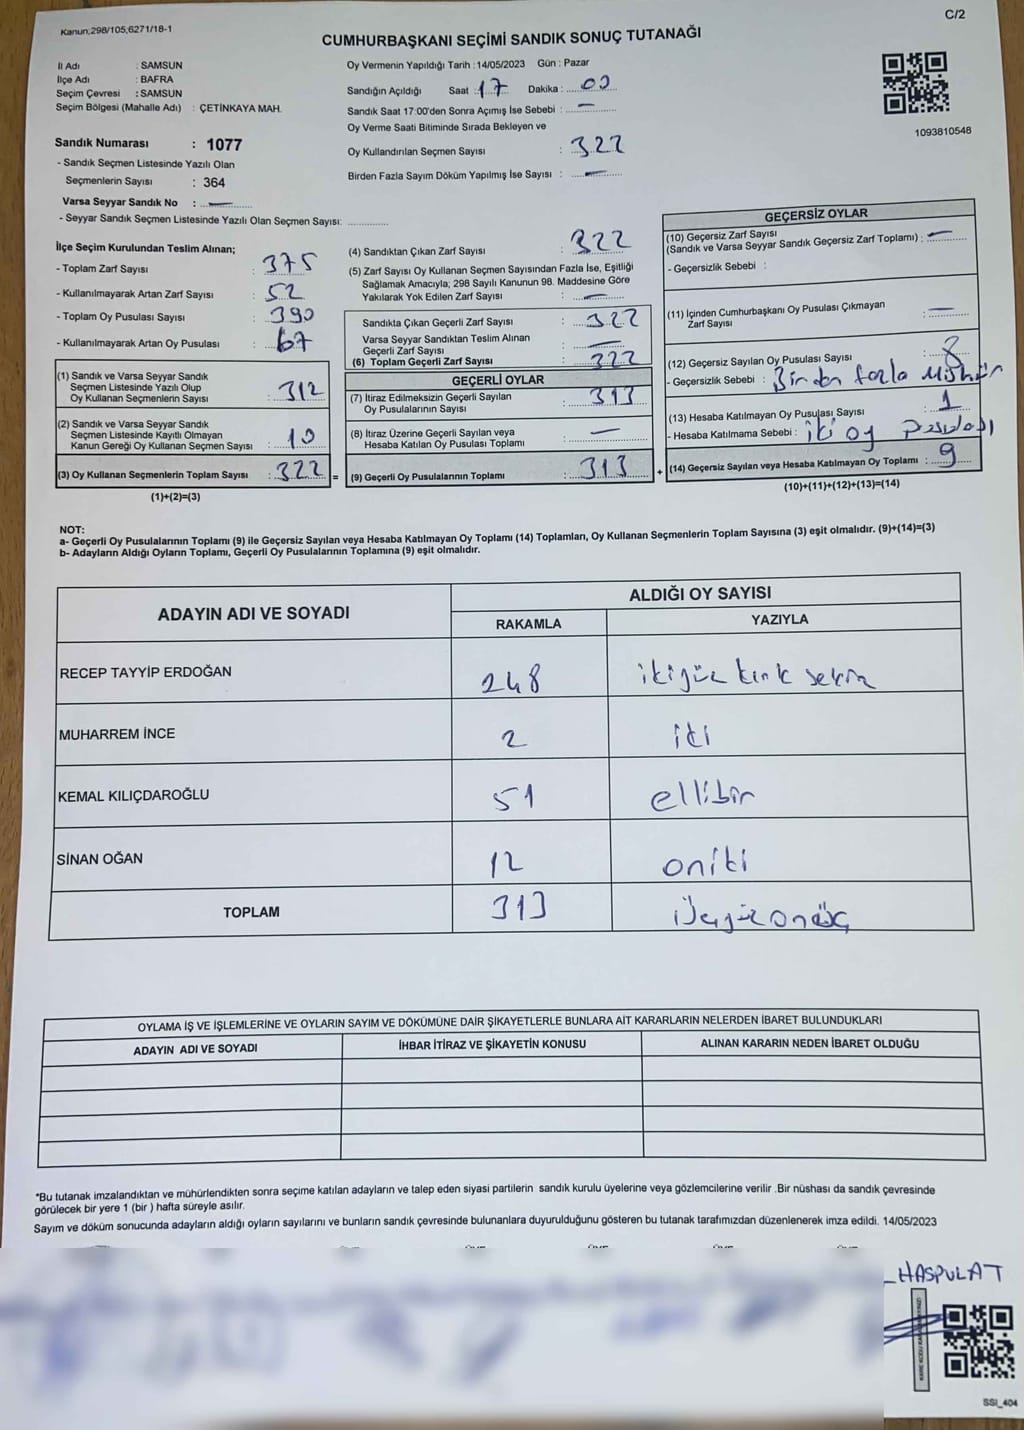 Kanun;298/105;6271/18-1
C/2
CUMHURBAŞKANI SEÇİMİ SANDIK SONUÇ TUTANAĞI
İl Adı : SAMSUN
İlçe Adı : BAFRA
Seçim Çevresi : SAMSUN
Seçim Bölgesi (Mahalle Adı) : ÇETİNKAYA MAH.
Sandık Numarası : 1077
- Sandık Seçmen Listesinde Yazılı Olan
Seçmenlerin Sayısı : 364
Varsa Seyyar Sandık No : —
- Seyyar Sandık Seçmen Listesinde Yazılı Olan Seçmen Sayısı: ..............
Oy Vermenin Yapıldığı Tarih : 14/05/2023 Gün : Pazar
Sandığın Açıldığı Saat : 17 Dakika : 00
Sandık Saat 17:00'den Sonra Açımış İse Sebebi : —
Oy Verme Saati Bitiminde Sırada Bekleyen ve
Oy Kullandırılan Seçmen Sayısı : 322
Birden Fazla Sayım Döküm Yapılmış İse Sayısı : —
1093810548
İlçe Seçim Kurulundan Teslim Alınan;
- Toplam Zarf Sayısı : 375
- Kullanılmayarak Artan Zarf Sayısı : 52
- Toplam Oy Pusulası Sayısı : 390
- Kullanılmayarak Artan Oy Pusulası : 67
(1) Sandık ve Varsa Seyyar Sandık
Seçmen Listesinde Yazılı Olup
Oy Kullanan Seçmenlerin Sayısı : 312
(2) Sandık ve Varsa Seyyar Sandık
Seçmen Listesinde Kayıtlı Olmayan
Kanun Gereği Oy Kullanan Seçmen Sayısı : 10
(3) Oy Kullanan Seçmenlerin Toplam Sayısı : 322 =
(1)+(2)=(3)
(4) Sandıktan Çıkan Zarf Sayısı : 322
(5) Zarf Sayısı Oy Kullanan Seçmen Sayısından Fazla İse, Eşitliği
Sağlamak Amacıyla; 298 Sayılı Kanunun 98. Maddesine Göre
Yakılarak Yok Edilen Zarf Sayısı : —
Sandıkta Çıkan Geçerli Zarf Sayısı : 322
Varsa Seyyar Sandıktan Teslim Alınan
Geçerli Zarf Sayısı : —
(6) Toplam Geçerli Zarf Sayısı : 322
GEÇERLİ OYLAR
(7) İtiraz Edilmeksizin Geçerli Sayılan
Oy Pusulalarının Sayısı : 313
(8) İtiraz Üzerine Geçerli Sayılan veya
Hesaba Katılan Oy Pusulası Toplamı : —
(9) Geçerli Oy Pusulalarının Toplamı : 313 +
GEÇERSİZ OYLAR
(10) Geçersiz Zarf Sayısı
(Sandık ve Varsa Seyyar Sandık Geçersiz Zarf Toplamı) : —
- Geçersizlik Sebebi :
(11) İçinden Cumhurbaşkanı Oy Pusulası Çıkmayan
Zarf Sayısı : —
(12) Geçersiz Sayılan Oy Pusulası Sayısı : 8
- Geçersizlik Sebebi : Birden fazla Mühür
(13) Hesaba Katılmayan Oy Pusulası Sayısı : 1
- Hesaba Katılmama Sebebi : iki oy pusulası
(14) Geçersiz Sayılan veya Hesaba Katılmayan Oy Toplamı : 9
(10)+(11)+(12)+(13)=(14)
NOT:
a- Geçerli Oy Pusulalarının Toplamı (9) ile Geçersiz Sayılan veya Hesaba Katılmayan Oy Toplamı (14) Toplamları, Oy Kullanan Seçmenlerin Toplam Sayısına (3) eşit olmalıdır. (9)+(14)=(3)
b- Adayların Aldığı Oyların Toplamı, Geçerli Oy Pusulalarının Toplamına (9) eşit olmalıdır.
ADAYIN ADI VE SOYADI
ALDIĞI OY SAYISI
RAKAMLA YAZIYLA
RECEP TAYYİP ERDOĞAN 248 ikiyüz kırk sekiz
MUHARREM İNCE 2 iki
KEMAL KILIÇDAROĞLU 51 ellibir
SİNAN OĞAN 12 oniki
TOPLAM 313 üçyüzonüç
OYLAMA İŞ VE İŞLEMLERİNE VE OYLARIN SAYIM VE DÖKÜMÜNE DAİR ŞİKAYETLERLE BUNLARA AİT KARARLARIN NELERDEN İBARET BULUNDUKLARI
ADAYIN ADI VE SOYADI İHBAR İTİRAZ VE ŞİKAYETİN KONUSU ALINAN KARARIN NEDEN İBARET OLDUĞU
*Bu tutanak imzalandıktan ve mühürlendikten sonra seçime katılan adayların ve talep eden siyasi partilerin sandık kurulu üyelerine veya gözlemcilerine verilir .Bir nüshası da sandık çevresinde
görülecek bir yere 1 (bir ) hafta süreyle asılır.
Sayım ve döküm sonucunda adayların aldığı oyların sayılarını ve bunların sandık çevresinde bulunanlara duyurulduğunu gösteren bu tutanak tarafımızdan düzenlenerek imza edildi. 14/05/2023
HASPULAT
SSI_404